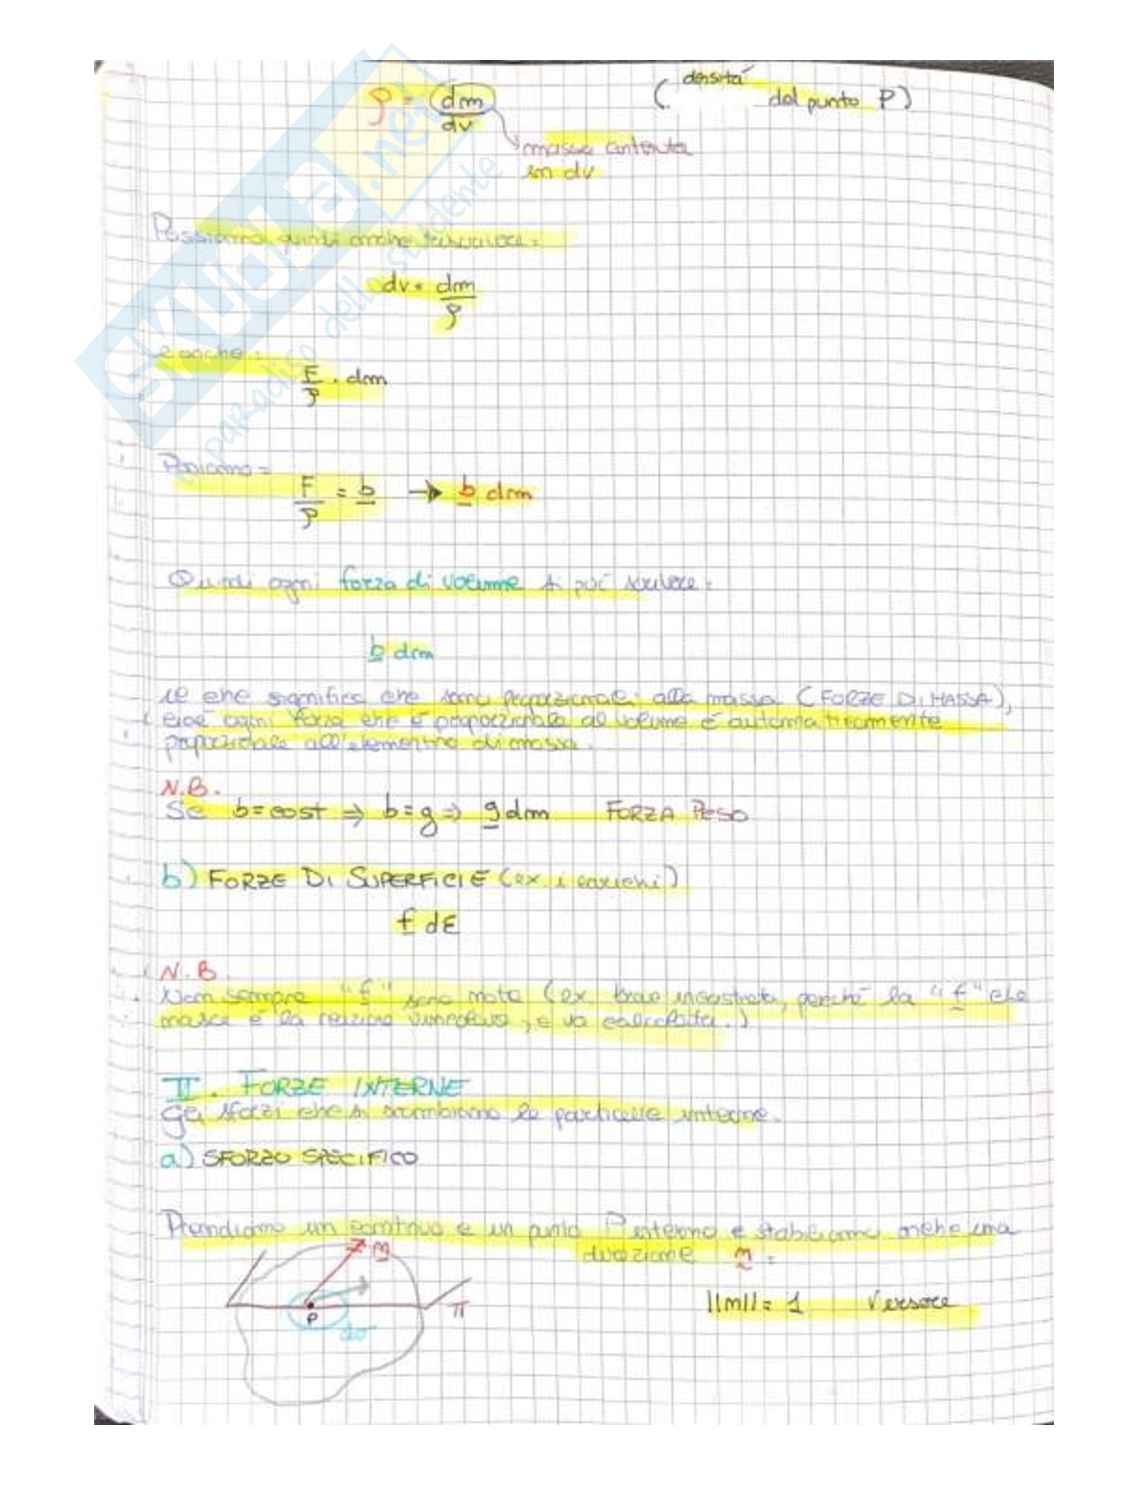 ρ = dm/dv (densità del punto P)
massa contenuta
in dv
Possiamo quindi anche scrivere:
dv = dm/ρ
e anche:
F/ρ · dm
Poniamo =
F/ρ = b → b dm
Quindi ogni forza di volume si può scrivere:
b dm
il che significa che sono proporzionali alla massa (FORZE DI MASSA),
cioè ogni forza che è proporzionale al volume è automaticamente
proporzionale all'elementino di massa.
N.B.
Se b = cost ⇒ b = g ⇒ g dm FORZA PESO
b) FORZE DI SUPERFICIE (ex. i carichi)
f dΣ
N.B.
Non sempre "f" sono note (ex trave incastrata, perché la "f" che
nasce è la reazione vincolare, e va calcolata.)
II. FORZE INTERNE
Gli sforzi che si scambiano le particelle interne.
a) SFORZO SPECIFICO
Prendiamo un continuo e un punto P interno e stabiliamo anche una
direzione n =
n
P
dσ
π
||n|| = 1 Versore
SKUOLA.net
il paradiso dello studente